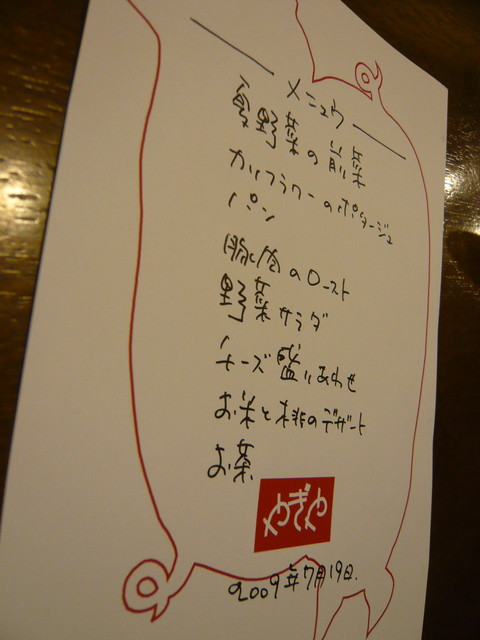 メニュウ
夏野菜の前菜
カリフラワーのポタージュ
パン
豚肉のロースト
野菜サラダ
チーズ盛りあわせ
お米と桃のデザート
お茶
やぎや
2009年7月19日.